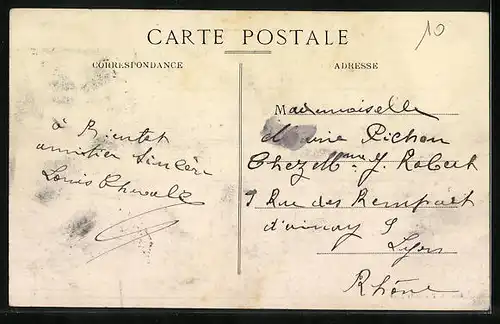 10
CARTE POSTALE
CORRESPONDANCE
ADRESSE
à Bientot
amitier Sincère
Louis
Mademoiselle
Pichon
Chez Mme J. Robert
9 Rue des Rempart
d'ainay 9
Lyon
Rhône